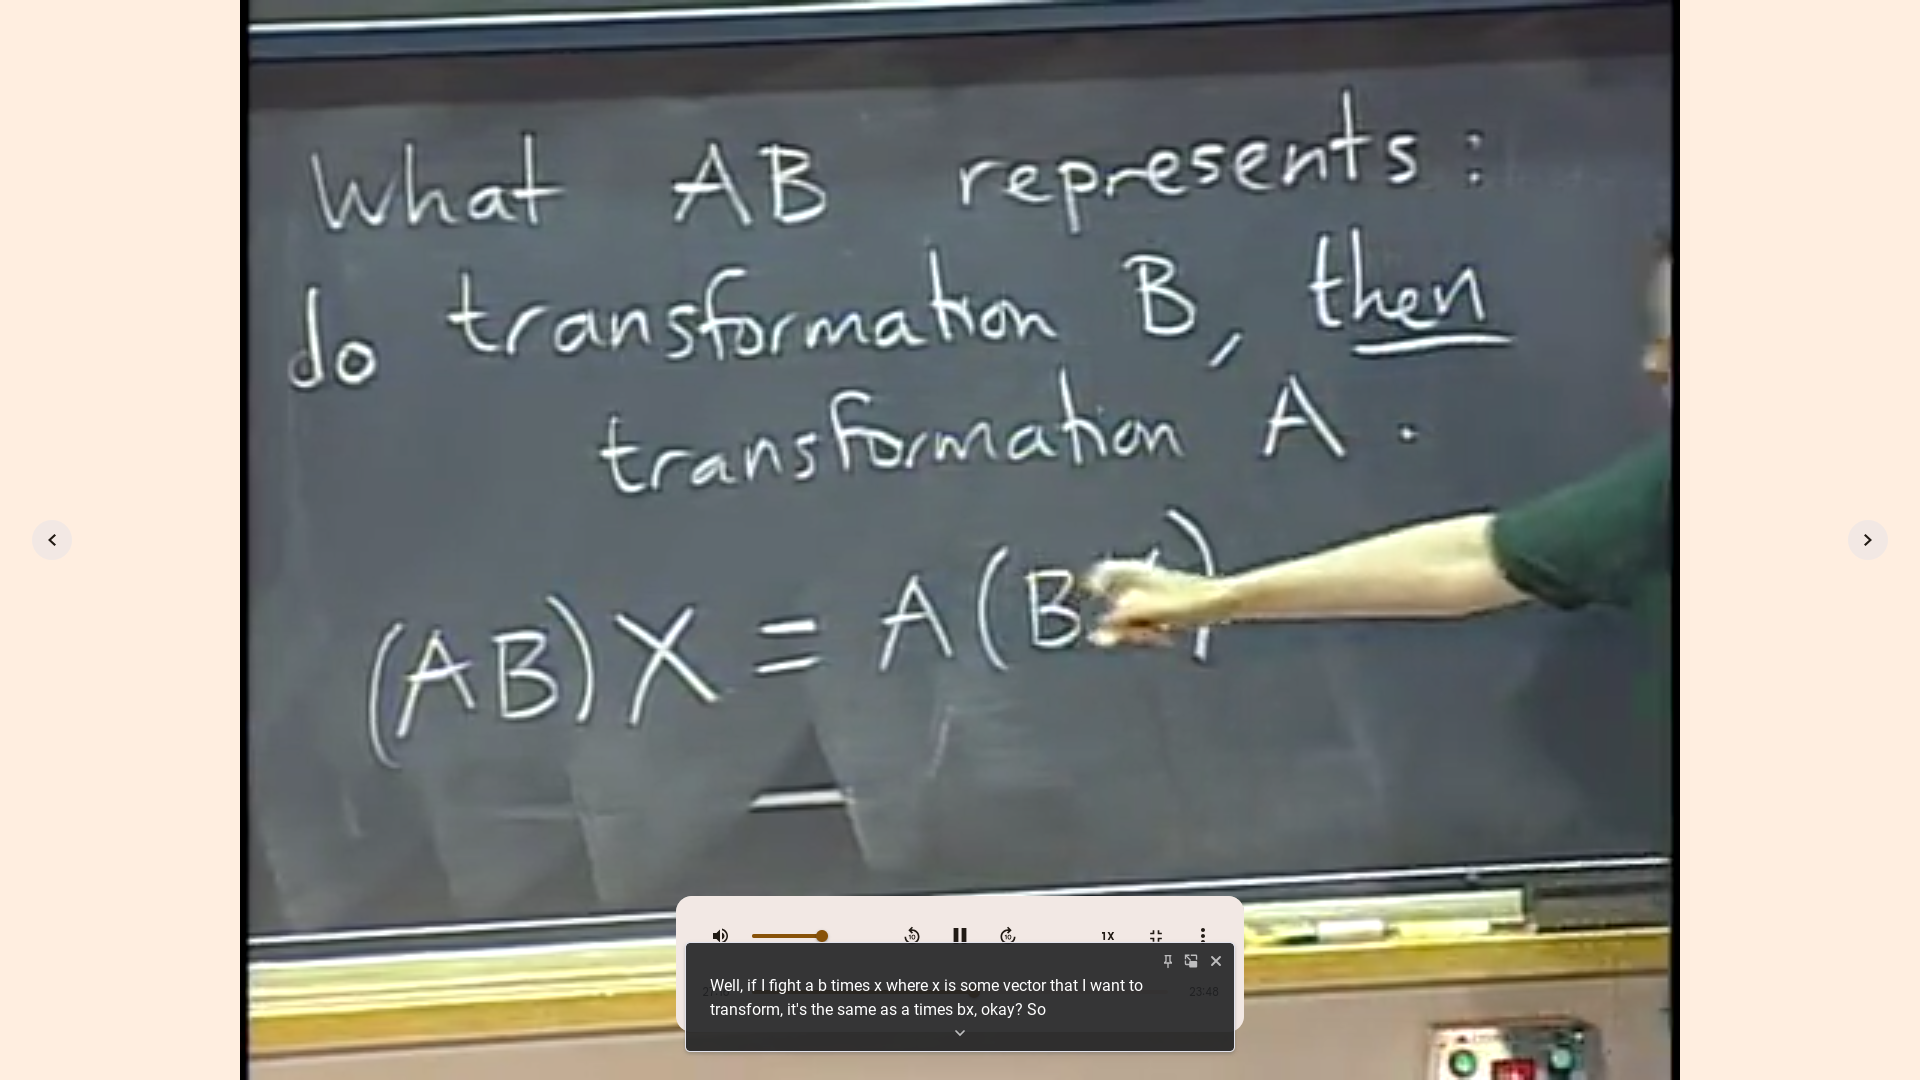 What AB represents :
do transformation B, then
transformation A .
(AB)X = A(B )
1X
23:48
Well, if I fight a b times x where x is some vector that I want to
transform, it's the same as a times bx, okay? So